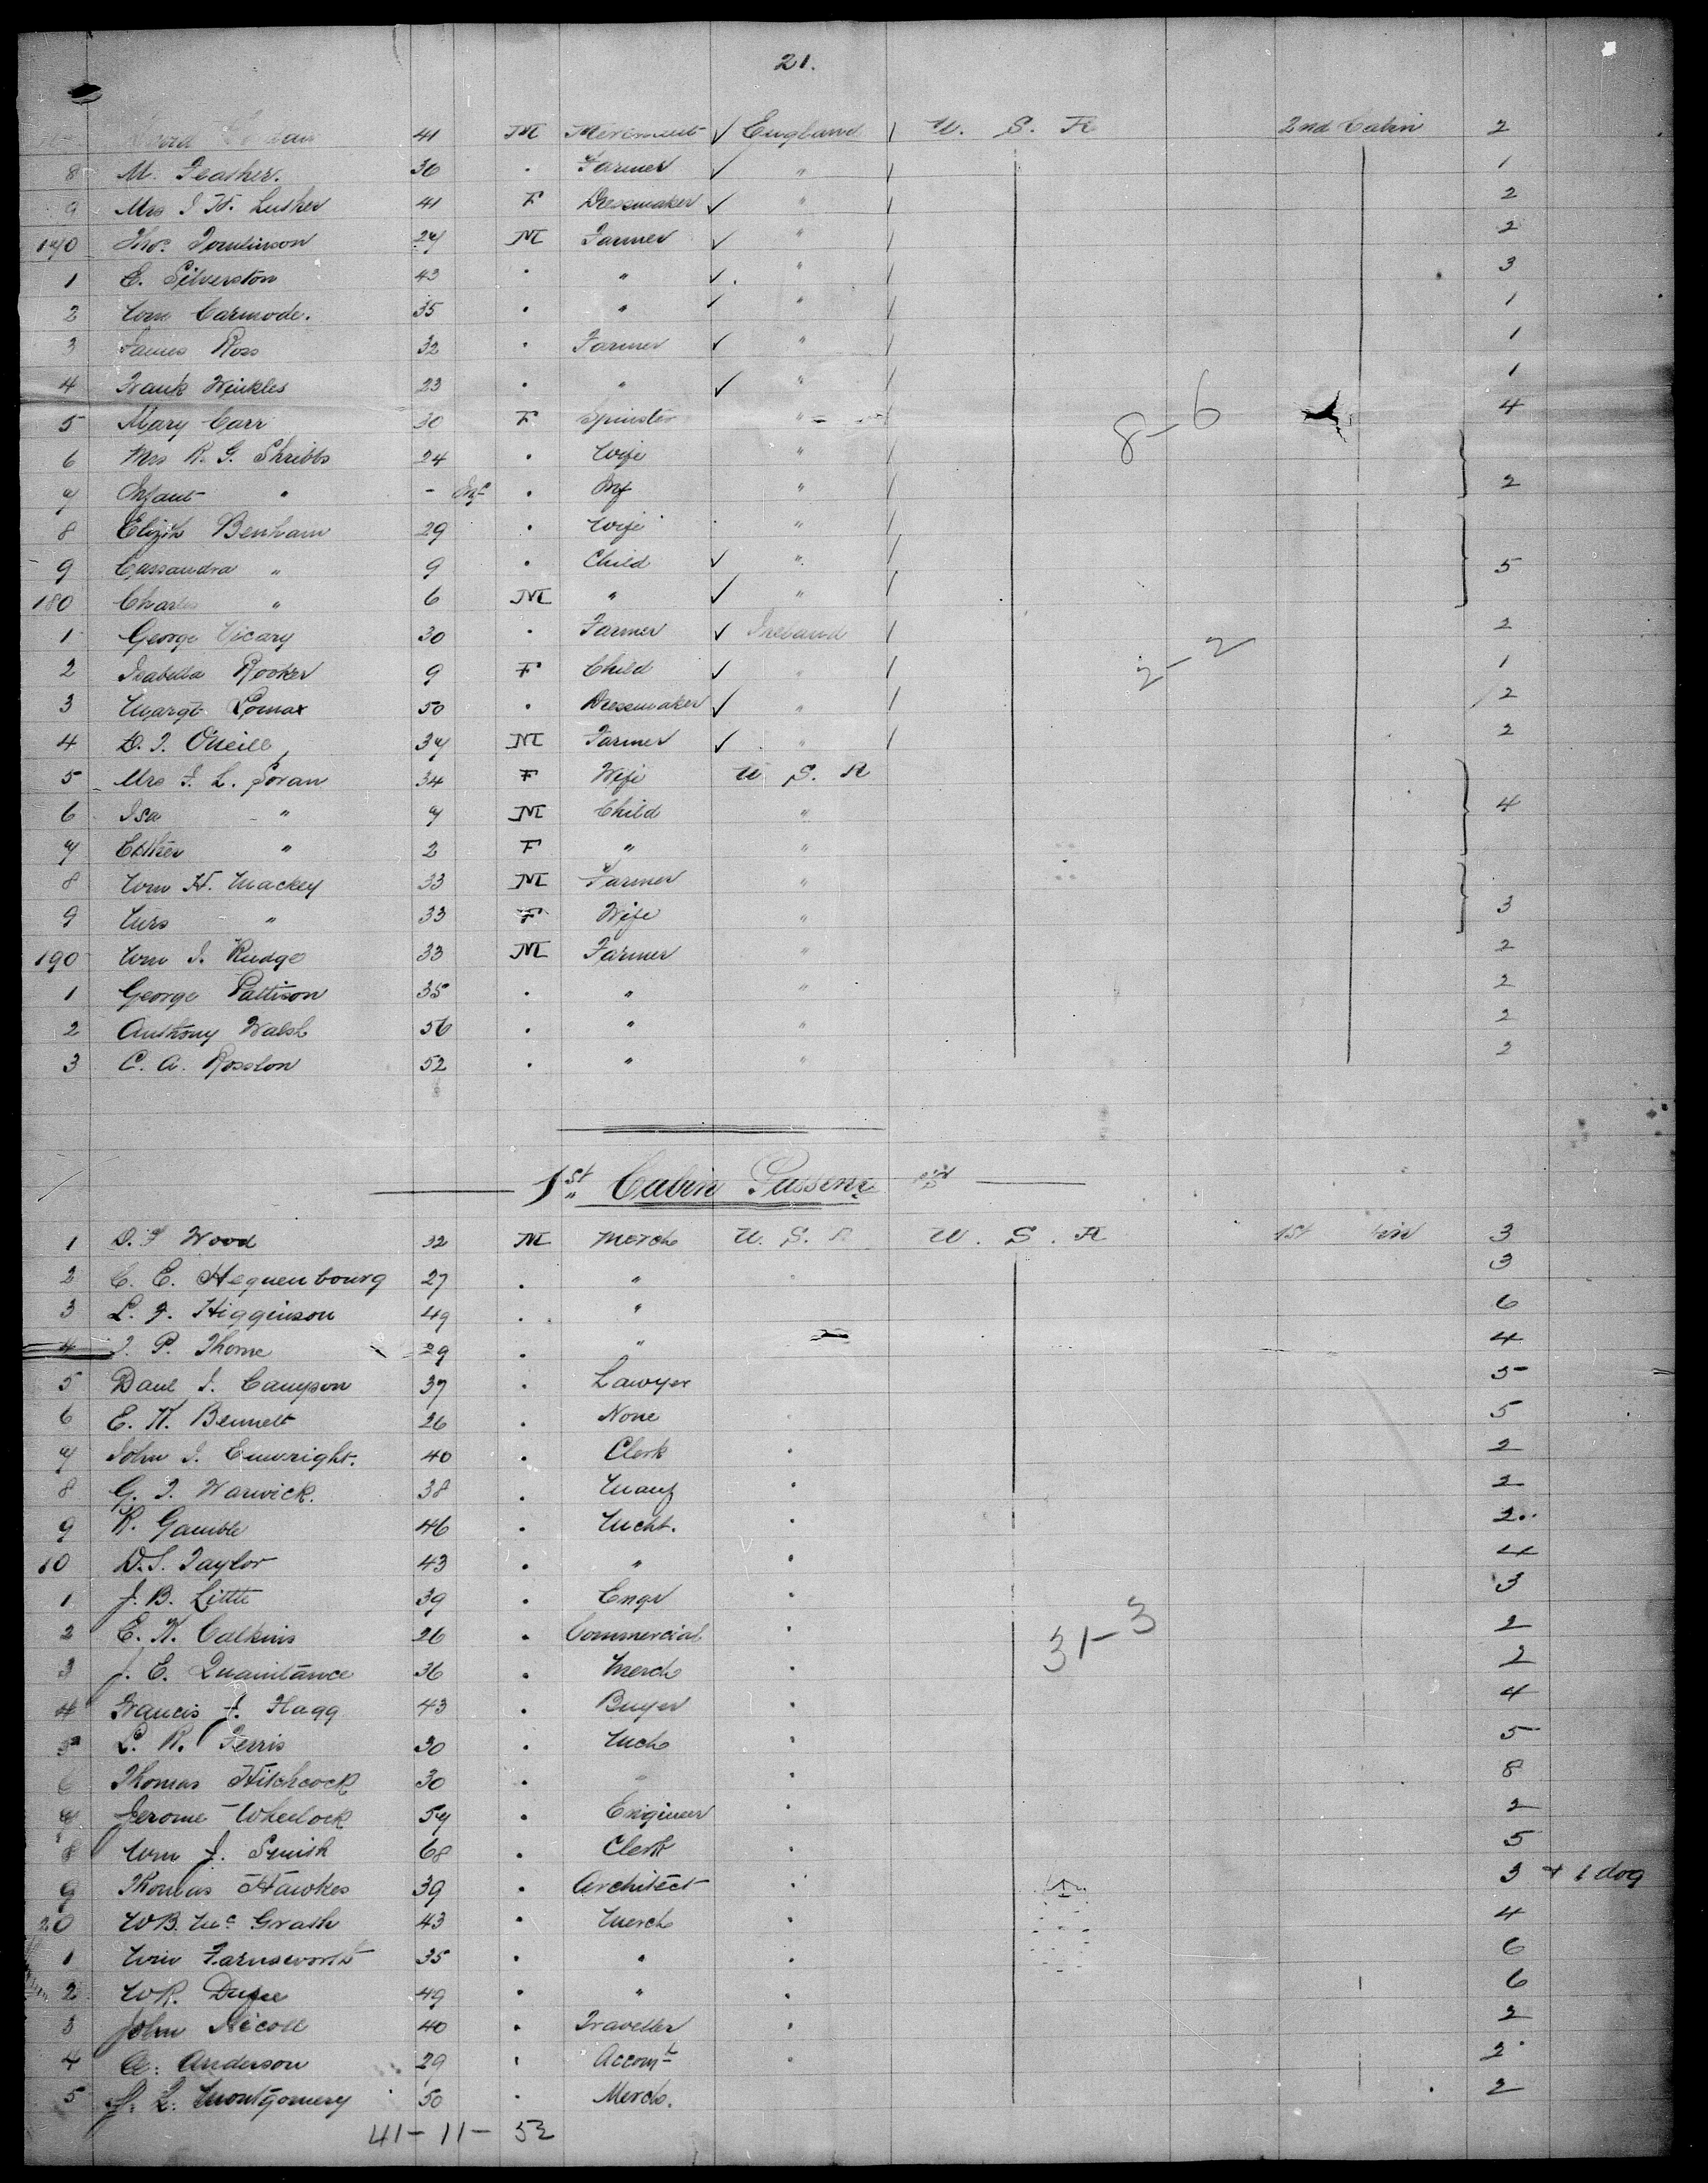 21.
41 M England U. S. A 2nd Cabin 2
8 M. Feather. 36 . Farmer ✓ " 1
9 Mrs J H. Lusher 41 F Dressmaker ✓ " 2
170 Thos. Tomlinson 27 M Farmer ✓ " 2
1 E. Silverston 43 . " ✓ " 3
2 Wm Carmode. 35 . " ✓ " 1
3 James Ross 32 . Farmer ✓ " 1
4 Frank Winkles 23 . " ✓ " 1
5 Mary Carr 30 F Spinster " 4
8-6
6 Mrs R. G. Shribbs 24 . Wife "
7 Infant " - Inf . Inf " 2
8 Elizth Benham 29 . Wife "
9 Cassandra " 9 . Child ✓ " 5
180 Charles " 6 M " ✓ "
1 George Vicary 30 . Farmer ✓ Ireland 2
2 Isabella Rooker 9 F Child ✓ " 1
2-2
3 Margt Lomax 50 . Dressmaker ✓ " 2
4 D. J. O'Neill 37 M Farmer ✓ " 2
5 Mrs J. L. 34 F Wife U S. A
6 Isa " 7 M Child " 4
7 Esther " 2 F " "
8 Wm H. Mackey 33 M Farmer "
9 Mrs " 33 F Wife " 3
190 Wm J. Rudge 33 M Farmer " 2
1 George Pattison 35 . " " 2
2 Anthony Walsh 56 . " " 2
3 C. A. Rosslon 52 . " " 2
1st Cabin Passen
1 D. Wood 32 M Merch U. S. A U. S. A 1st 3
2 C. E. Hequenbourg 27 . " 3
3 L. J. Higginson 49 . " 6
4 J. P. Thorne 29 . " 4
5 Danl J. Campson 37 . Lawyer 5
6 E. K. Bennett 26 . None 5
7 John J. Enwright. 40 . Clerk 2
8 G. J. Warwick. 38 . Manf 2
9 R. Gamble 46 . Mcht. 2
10 D. S. Taylor 43 . " 4
1 J. B. Little 39 . Engr 3
2 E. K. Calkins 26 . Commercial 2
31-3
3 J. E. Quaintance 36 . Merch 2
4 Francis J. Flagg 43 . Buyer 4
5 L. R. Ferris 30 . Mch 5
6 Thomas Hitchcock 30 . " 8
7 Jerome Wheelock 57 . Engineer 2
8 Wm J. Smith 68 . Clerk 5
9 Thomas Hawkes 39 . Architect 3 + 1 dog
20 W B. Mc Grath 43 . Merch 4
1 Wm Farnsworth 35 . " 6
2 W R. Dupee 49 . " 6
3 John Nicoll 40 . Traveller 2
4 A. Anderson 29 . Accomt 2
5 Montgomery 50 . Merch. 2
41-11-52